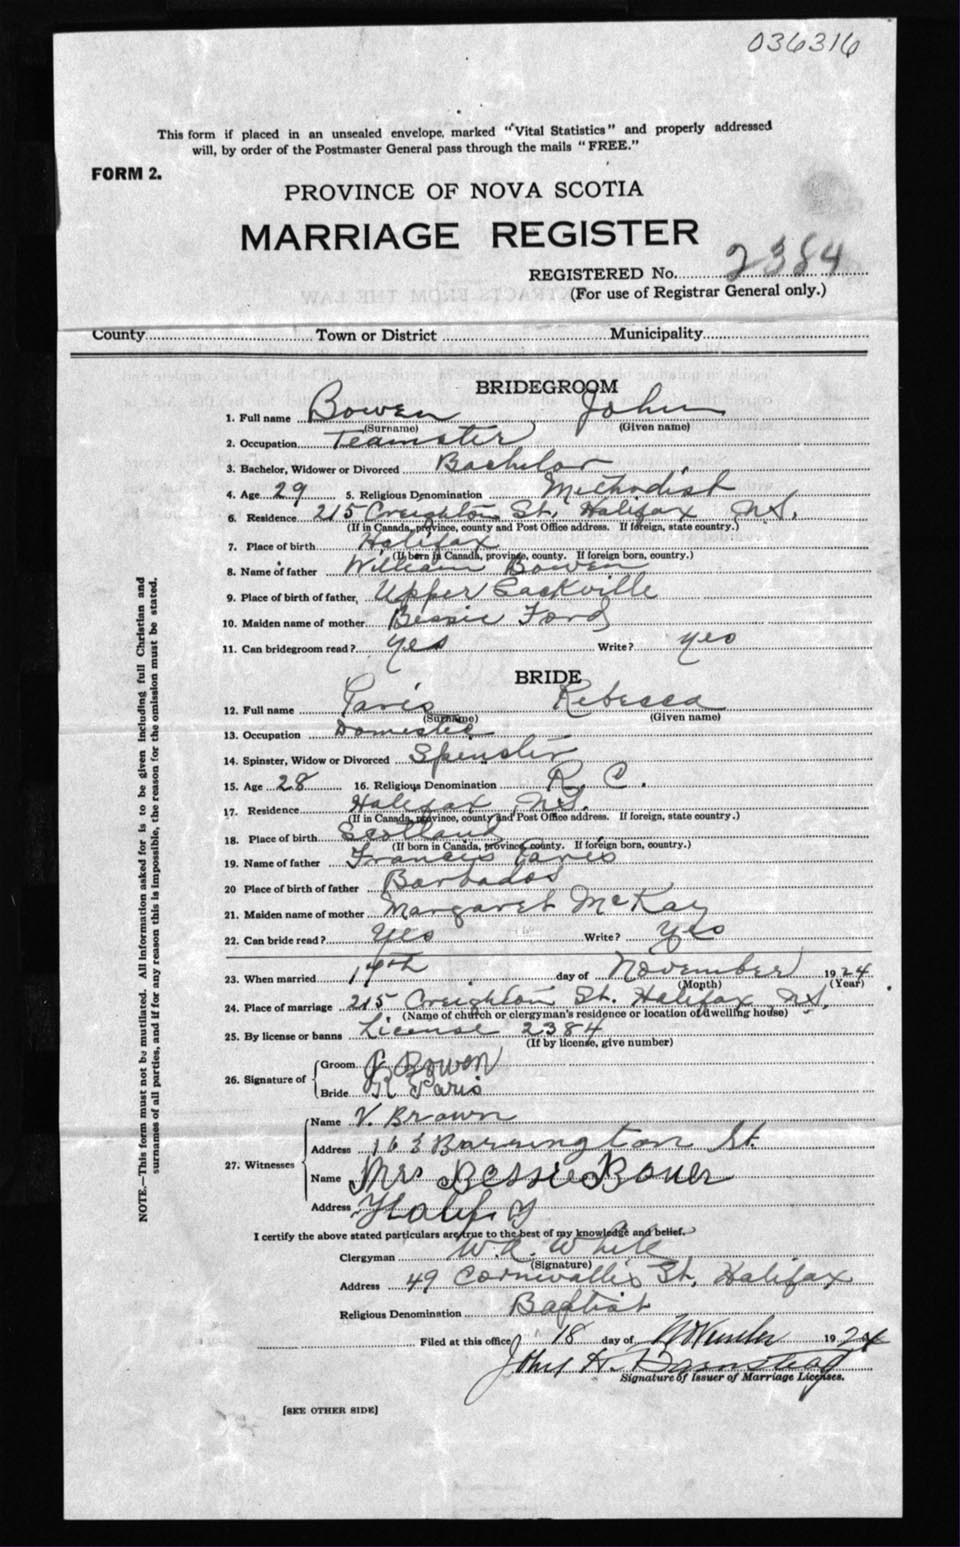 036316
This form if placed in an unsealed envelope, marked "Vital Statistics" and properly addressed
will, by order of the Postmaster General pass through the mails "FREE."
FORM 2.
PROVINCE OF NOVA SCOTIA
MARRIAGE REGISTER
REGISTERED No. 2384
(For use of Registrar General only.)
County Town or District Municipality
BRIDEGROOM
1. Full name Bowen John
(Surname) (Given name)
2. Occupation Teamster
3. Bachelor, Widower or Divorced Bachelor
4. Age 29 5. Religious Denomination Methodist
6. Residence 215 Creighton St. Halifax N.S.
(If in Canada, province, county and Post Office address. If foreign, state country.)
7. Place of birth Halifax
(If born in Canada, province, county. If foreign born, country.)
8. Name of father William Bowen
9. Place of birth of father, Upper Sackville
10. Maiden name of mother Bessie Ford
11. Can bridegroom read? yes Write? yes
BRIDE
12. Full name Paris Rebecca
(Surname) (Given name)
13. Occupation Domestic
14. Spinster, Widow or Divorced Spinster
15. Age 28 16. Religious Denomination R. C.
17. Residence Halifax N.S.
(If in Canada, province, county and Post Office address. If foreign, state country.)
18. Place of birth Scotland
(If born in Canada, province, county. If foreign born, country.)
19. Name of father Francis Paris
20 Place of birth of father Barbados
21. Maiden name of mother Margaret McKay
22. Can bride read? Yes Write? Yes
23. When married 14th day of November 1924
(Month) (Year)
24. Place of marriage 215 Creighton St. Halifax N.S.
(Name of church or clergyman's residence or location of dwelling house)
25. By license or banns License 2384
(If by license, give number)
26. Signature of Groom J Bowen
Bride R Paris
27. Witnesses Name V. Brown
Address 163 Barrington St.
Name Mrs Bessie Bowen
Address Halifax
I certify the above stated particulars are true to the best of my knowledge and belief.
Clergyman W. A. White
(Signature)
Address 49 Cornwallis St. Halifax
Religious Denomination Baptist
Filed at this office 18 day of November 1924
John H. Barnstead
Signature of Issuer of Marriage Licenses.
[SEE OTHER SIDE]
NOTE.—This form must not be mutilated. All information asked for is to be given including full Christian and
surnames of all parties, and if for any reason this is impossible, the reason for the omission must be stated.